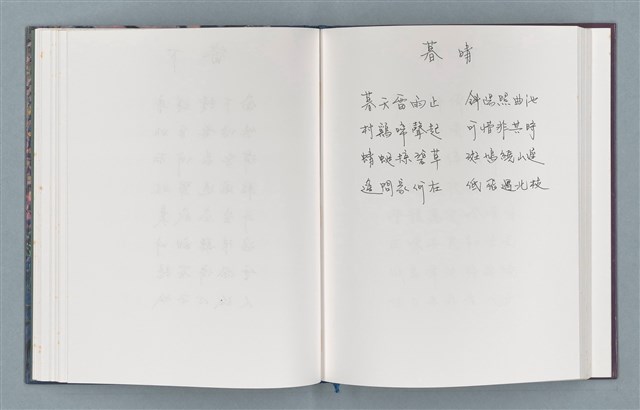 暮晴
暮天雷雨止 斜陽照曲池
村鷄啼聲起 可惜非其時
蜻蜓掠碧草 斑鳩繞山遠
遙問家何在 低飛過北枝